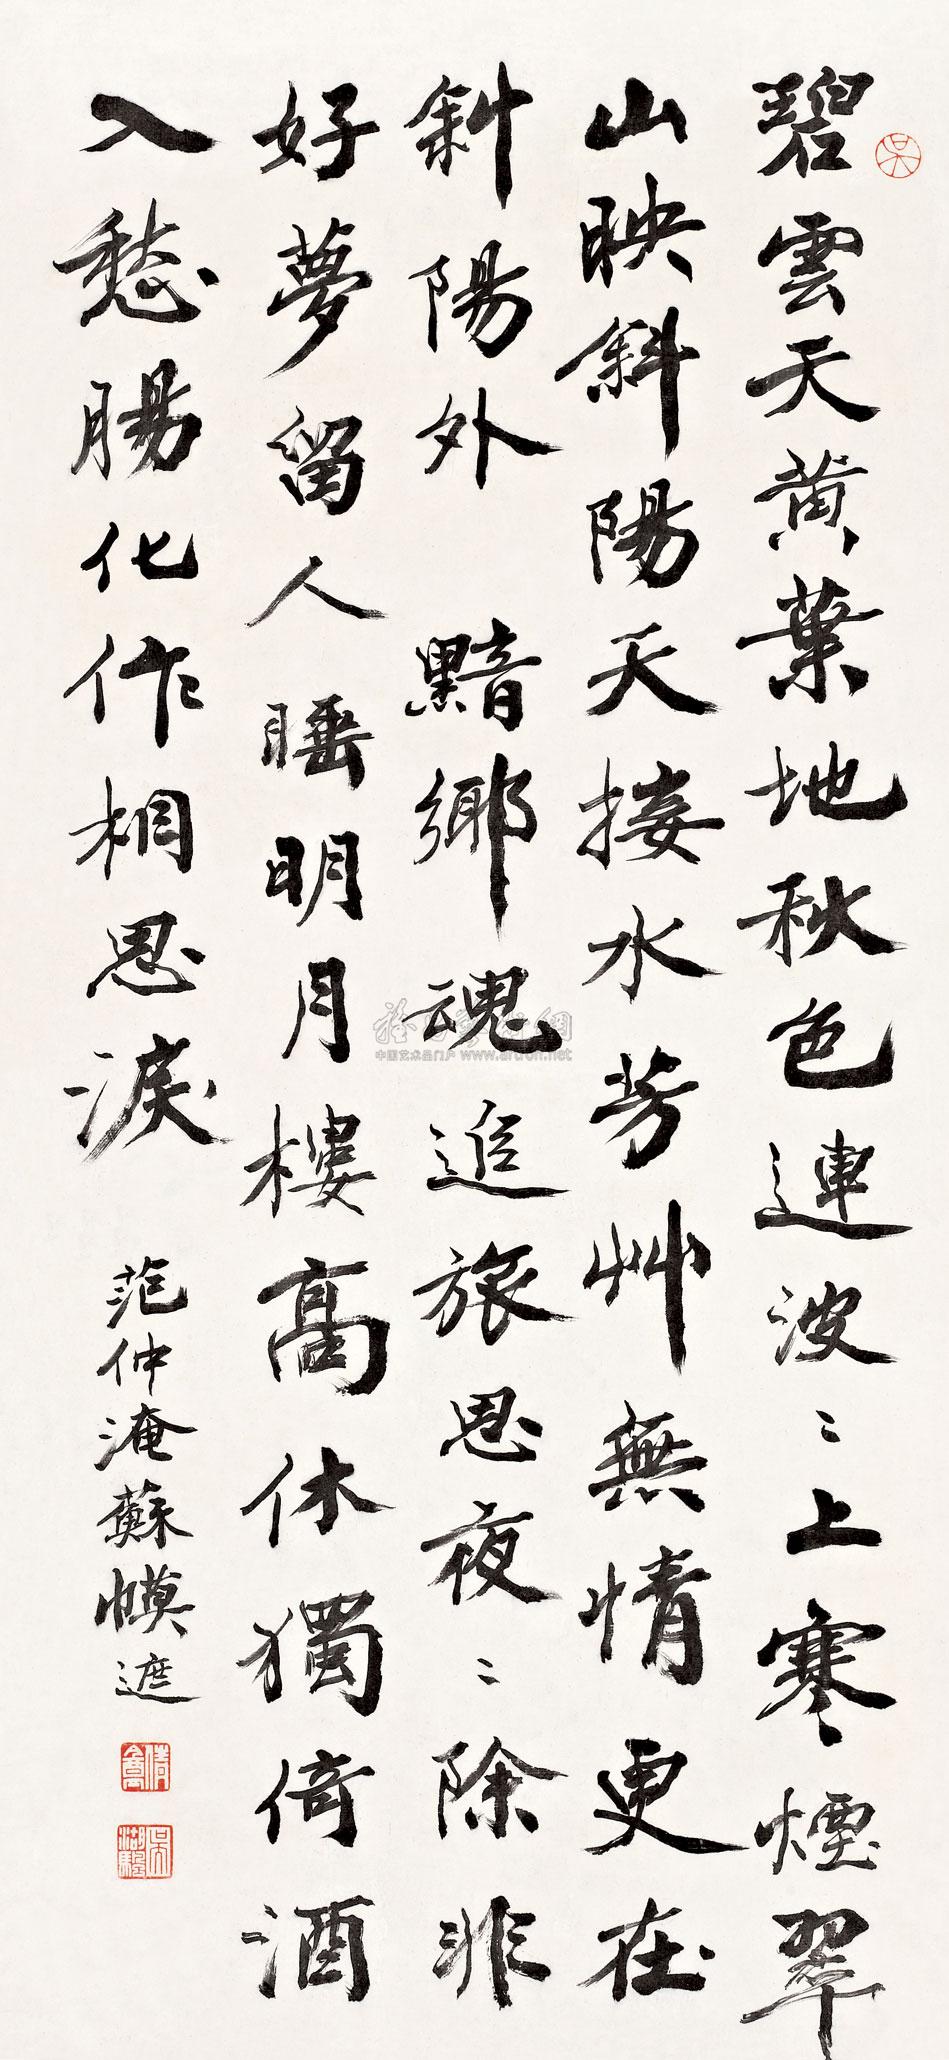 吳
碧雲天黃葉地秋色連波〻上寒煙翠
山映斜陽天接水芳艸無情更在
斜陽外 黯鄉魂追旅思夜〻除非
好夢留人睡明月樓高休獨倚酒
入愁腸化作相思淚
范仲淹蘇幙遮
倩盦
雅昌藝術網
中国艺术品门户 www.artron.net